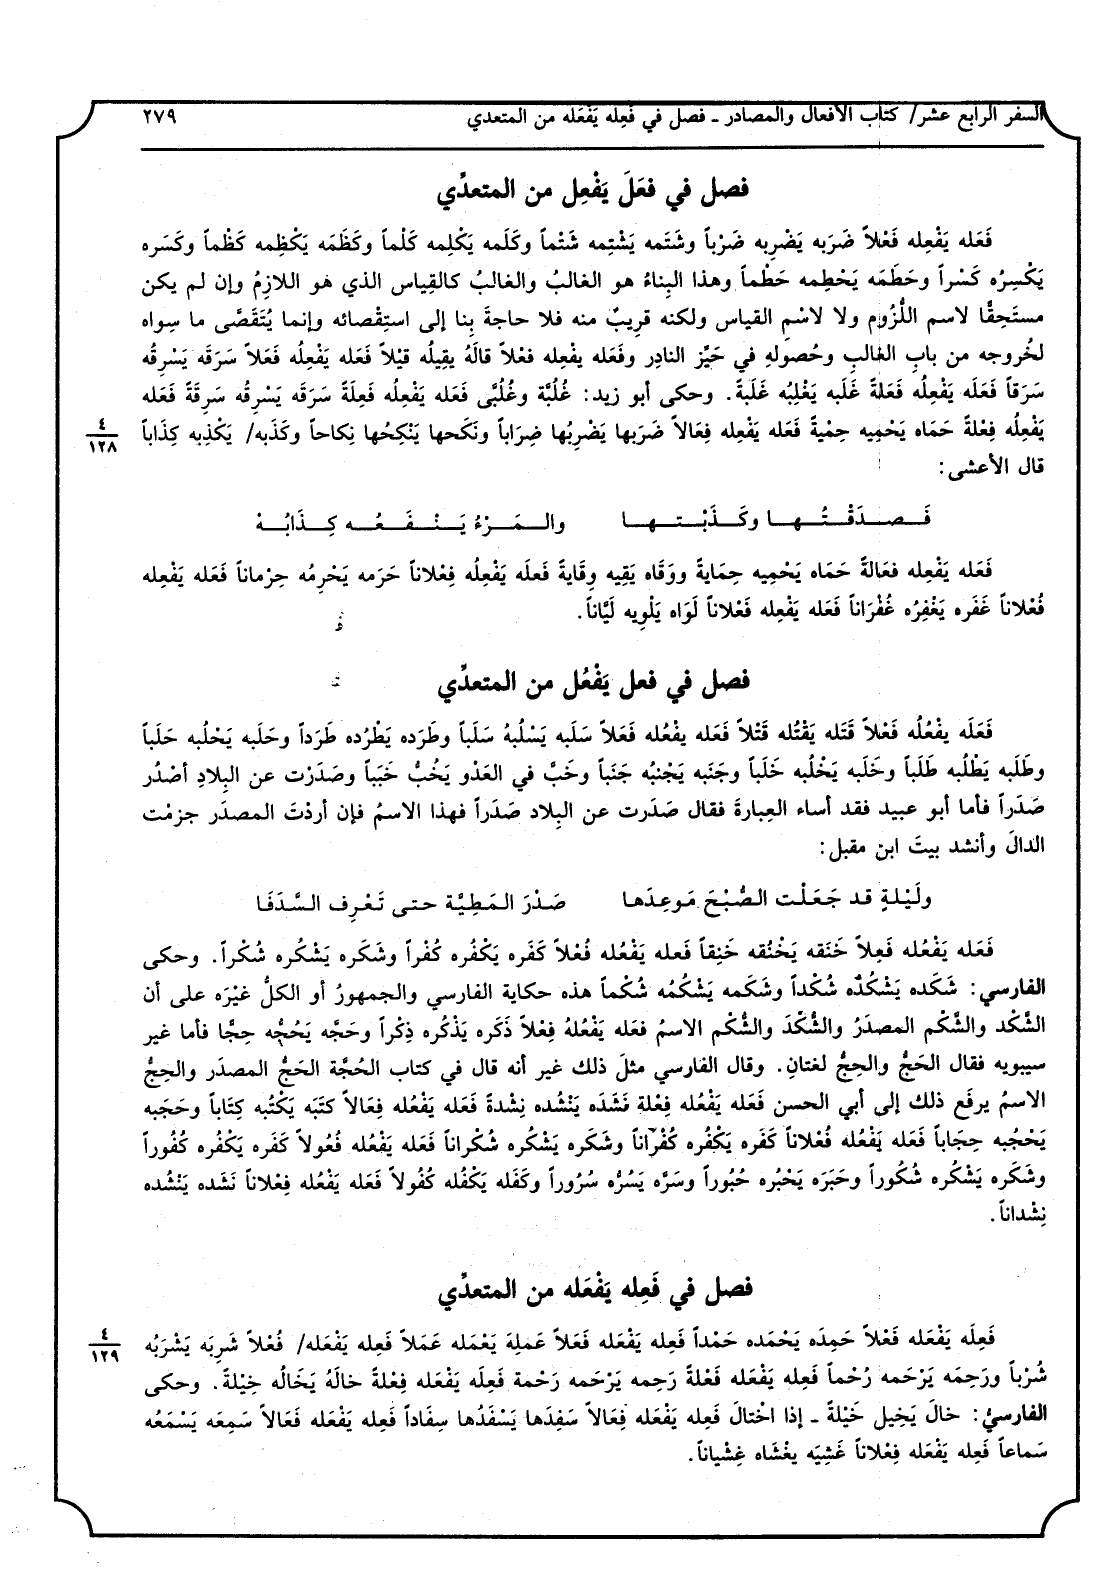 السفر الرابع عشر/ كتاب الأفعال والمصادر ـ فصل في فَعِله يَفْعَله من المتعدي
٢٧٩
فصل في فعَلَ يَفْعِل من المتعدِّي
فَعَله يَفْعِله فَعْلاً ضَرَبه يَضْرِبه ضَرْباً وشتَمه يَشْتِمه شَتْماً وكَلَمه يَكْلِمه كَلْماً وكَظَمَه يَكْظِمه كَظْماً وكَسَره
يَكْسِرُه كَسْراً وحَطَمَه يَحْطِمه حَطْماً وهذا البِناءُ هو الغالبُ والغالبُ كالقِياس الذي هو اللازِمُ وإن لم يكن
مستَحِقًّا لاسم اللُّزُوم ولا لاسْمِ القياس ولكنه قريبٌ منه فلا حاجةَ بِنا إلى استِقْصائه وإنما يُتَقَصَّى ما سِواه
لخُروجه من بابِ الغالبِ وحُصولهِ في حَيِّز النادِر وفَعَله يفْعِله فعْلاً قالَهُ يقِيلُه قيْلاً فَعَله يَفْعِلُه فَعَلاً سَرَقَه يَسْرِقُه
سَرَقاً فَعَله يَفْعِلُه فَعَلةً غَلَبه يَغْلِبُه غَلَبةً. وحكى أبو زيد: غُلُبَّة وغُلُبَّى فَعَله يَفْعِلُه فَعِلَةً سَرَقَه يَسْرِقُه سَرِقَةً فَعَله
يَفْعِلُه فِعْلةً حَمَاه يَحْمِيه حِمْيةً فَعَله يَفْعِله فِعَالاً ضَرَبها يَضْرِبُها ضِرَاباً ونَكَحها يَنْكِحُها نِكاحاً وكَذَبه/ يَكْذِبه كِذَاباً
٤
١٢٨
قال الأعشى:
فَـصـدَقْـتُـهـا وكَـذَبْـتـهـا والـمَـرْءُ يَـنْـفَـعُـه كِـذَابُـهْ
فَعَله يَفْعِله فعَالةً حَمَاه يَحْمِيه حِمَايةً ووَقَاه يَقِيه وِقَايةً فَعلَه يَفْعِلُه فِعْلاناً حَرَمه يَحْرِمُه حِرْماناً فَعَله يَفْعِله
فُعْلاناً غَفَره يَغْفِرُه غُفْرَاناً فَعَله يَفْعِله فَعْلاناً لَوَاه يَلْوِيه لَيَّاناً.
فصل في فعل يَفْعُل من المتعدِّي
فَعَلَه يفْعُلُه فَعْلاً قَتَله يَقْتُله قَتْلاً فَعَله يفْعُله فَعَلاً سَلَبه يَسْلُبهُ سَلَباً وطَرَده يَطْرُده طَرَداً وحَلَبه يَحْلُبه حَلَباً
وطَلَبه يَطْلُبه طَلَباً وخَلَبه يَخْلُبه خَلَباً وجَنَبه يَجْنبُه جَنَباً وخَبَّ في العَدْو يَخُبُّ خَبَباً وصَدَرْت عن البِلادِ أصْدُر
صَدَراً فأما أبو عبيد فقد أساء العِبارةَ فقال صَدَرت عن البِلاد صَدَراً فهذا الاسمُ فإن أردْتَ المصدَر جزمْت
الدالَ وأنشد بيتَ ابن مقبل:
ولَيْلةٍ قد جَعَلْت الصُّبْحَ مَوعِدَها صَدْرَ المَطِيَّة حتى تَعْرِف السَّدَفَا
فَعَله يَفْعُله فَعِلاً خَنَقه يَخْنُقه خَنِقاً فَعله يَفْعُله فُعْلاً كَفَره يَكْفُره كُفْراً وشَكَره يَشْكُره شُكْراً. وحكى
الفارسي: شَكَده يَشْكُدُه شُكْداً وشَكَمه يَشْكُمُه شُكْماً هذه حكاية الفارسي والجمهورُ أو الكلُّ غيْرَه على أن
الشَّكْد والشَّكْم المصدَرُ والشُّكْدَ والشُّكْم الاسمُ فَعَله يَفْعُلهُ فِعْلاً ذَكَره يَذْكُره ذِكْراً وحَجَّه يَحُجُّه حِجًّا فأما غير
سيبويه فقال الحَجُّ والحِجُّ لغتانِ. وقال الفارسي مثلَ ذلك غير أنه قال في كتاب الحُجَّة الحَجُّ المصدَر والحِجُّ
الاسمُ يرفَع ذلك إلى أبي الحسن فَعَله يَفْعُله فِعْلةِ نَشَدَه يَنْشُده نِشْدةً فَعَله يَفْعُله فِعَالاً كتَبَه يَكْتُبه كِتَاباً وحَجَبه
يَحْجُبه حِجَاباً فَعَله يَفْعُله فُعْلاناً كَفَره يَكْفُره كُفْرَاناً وشَكَره يَشْكُره شُكْراناً فَعَله يَفْعُله فُعُولاً كَفَره يَكْفُره كُفُوراً
وشَكَره يَشْكُره شُكُوراً وحَبَرَه يَحْبُره حُبُوراً وسَرَّه يَسُرُّه سُرُوراً وكَفَله يَكْفُله كُفُولاً فَعَله يَفْعُله فِعْلاناً نَشَده يَنْشُده
نِشْداناً.
فصل في فَعِله يَفْعَله من المتعدِّي
فَعِلَه يَفْعَله فَعْلاً حَمِدَه يَحْمَده حَمْداً فَعِله يَفْعَله فَعَلاً عَمِلَه يَعْمَله عَمَلاً فَعِله يَفْعَله/ فُعْلاً شَرِبَه يَشْرَبُه
٤
١٢٩
شُرْباً ورَحِمَه يَرْحَمه رُحْماً فَعِله يَفْعَله فَعْلةً رَحِمه يَرْحَمه رَحْمة فَعِلَه يَفْعَله فِعْلةً خالَهُ يَخَالُه خِيْلةً. وحكى
الفارسيُّ: خالَ يَخِيل خَيْلةً ـ إذا اخْتالَ فَعِله يَفْعَله فِعَالاً سَفِدَها يَسْفَدُها سِفَاداً فَعِله يَفْعَله فَعَالاً سَمِعَه يَسْمَعُه
سَماعاً فَعِله يَفْعَله فِعْلاناً غَشِيَه يغْشَاه غِشْياناً.